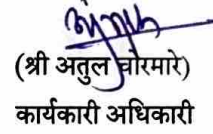 (श्री अतुल चोरमारे)
कार्यकारी अधिकारी